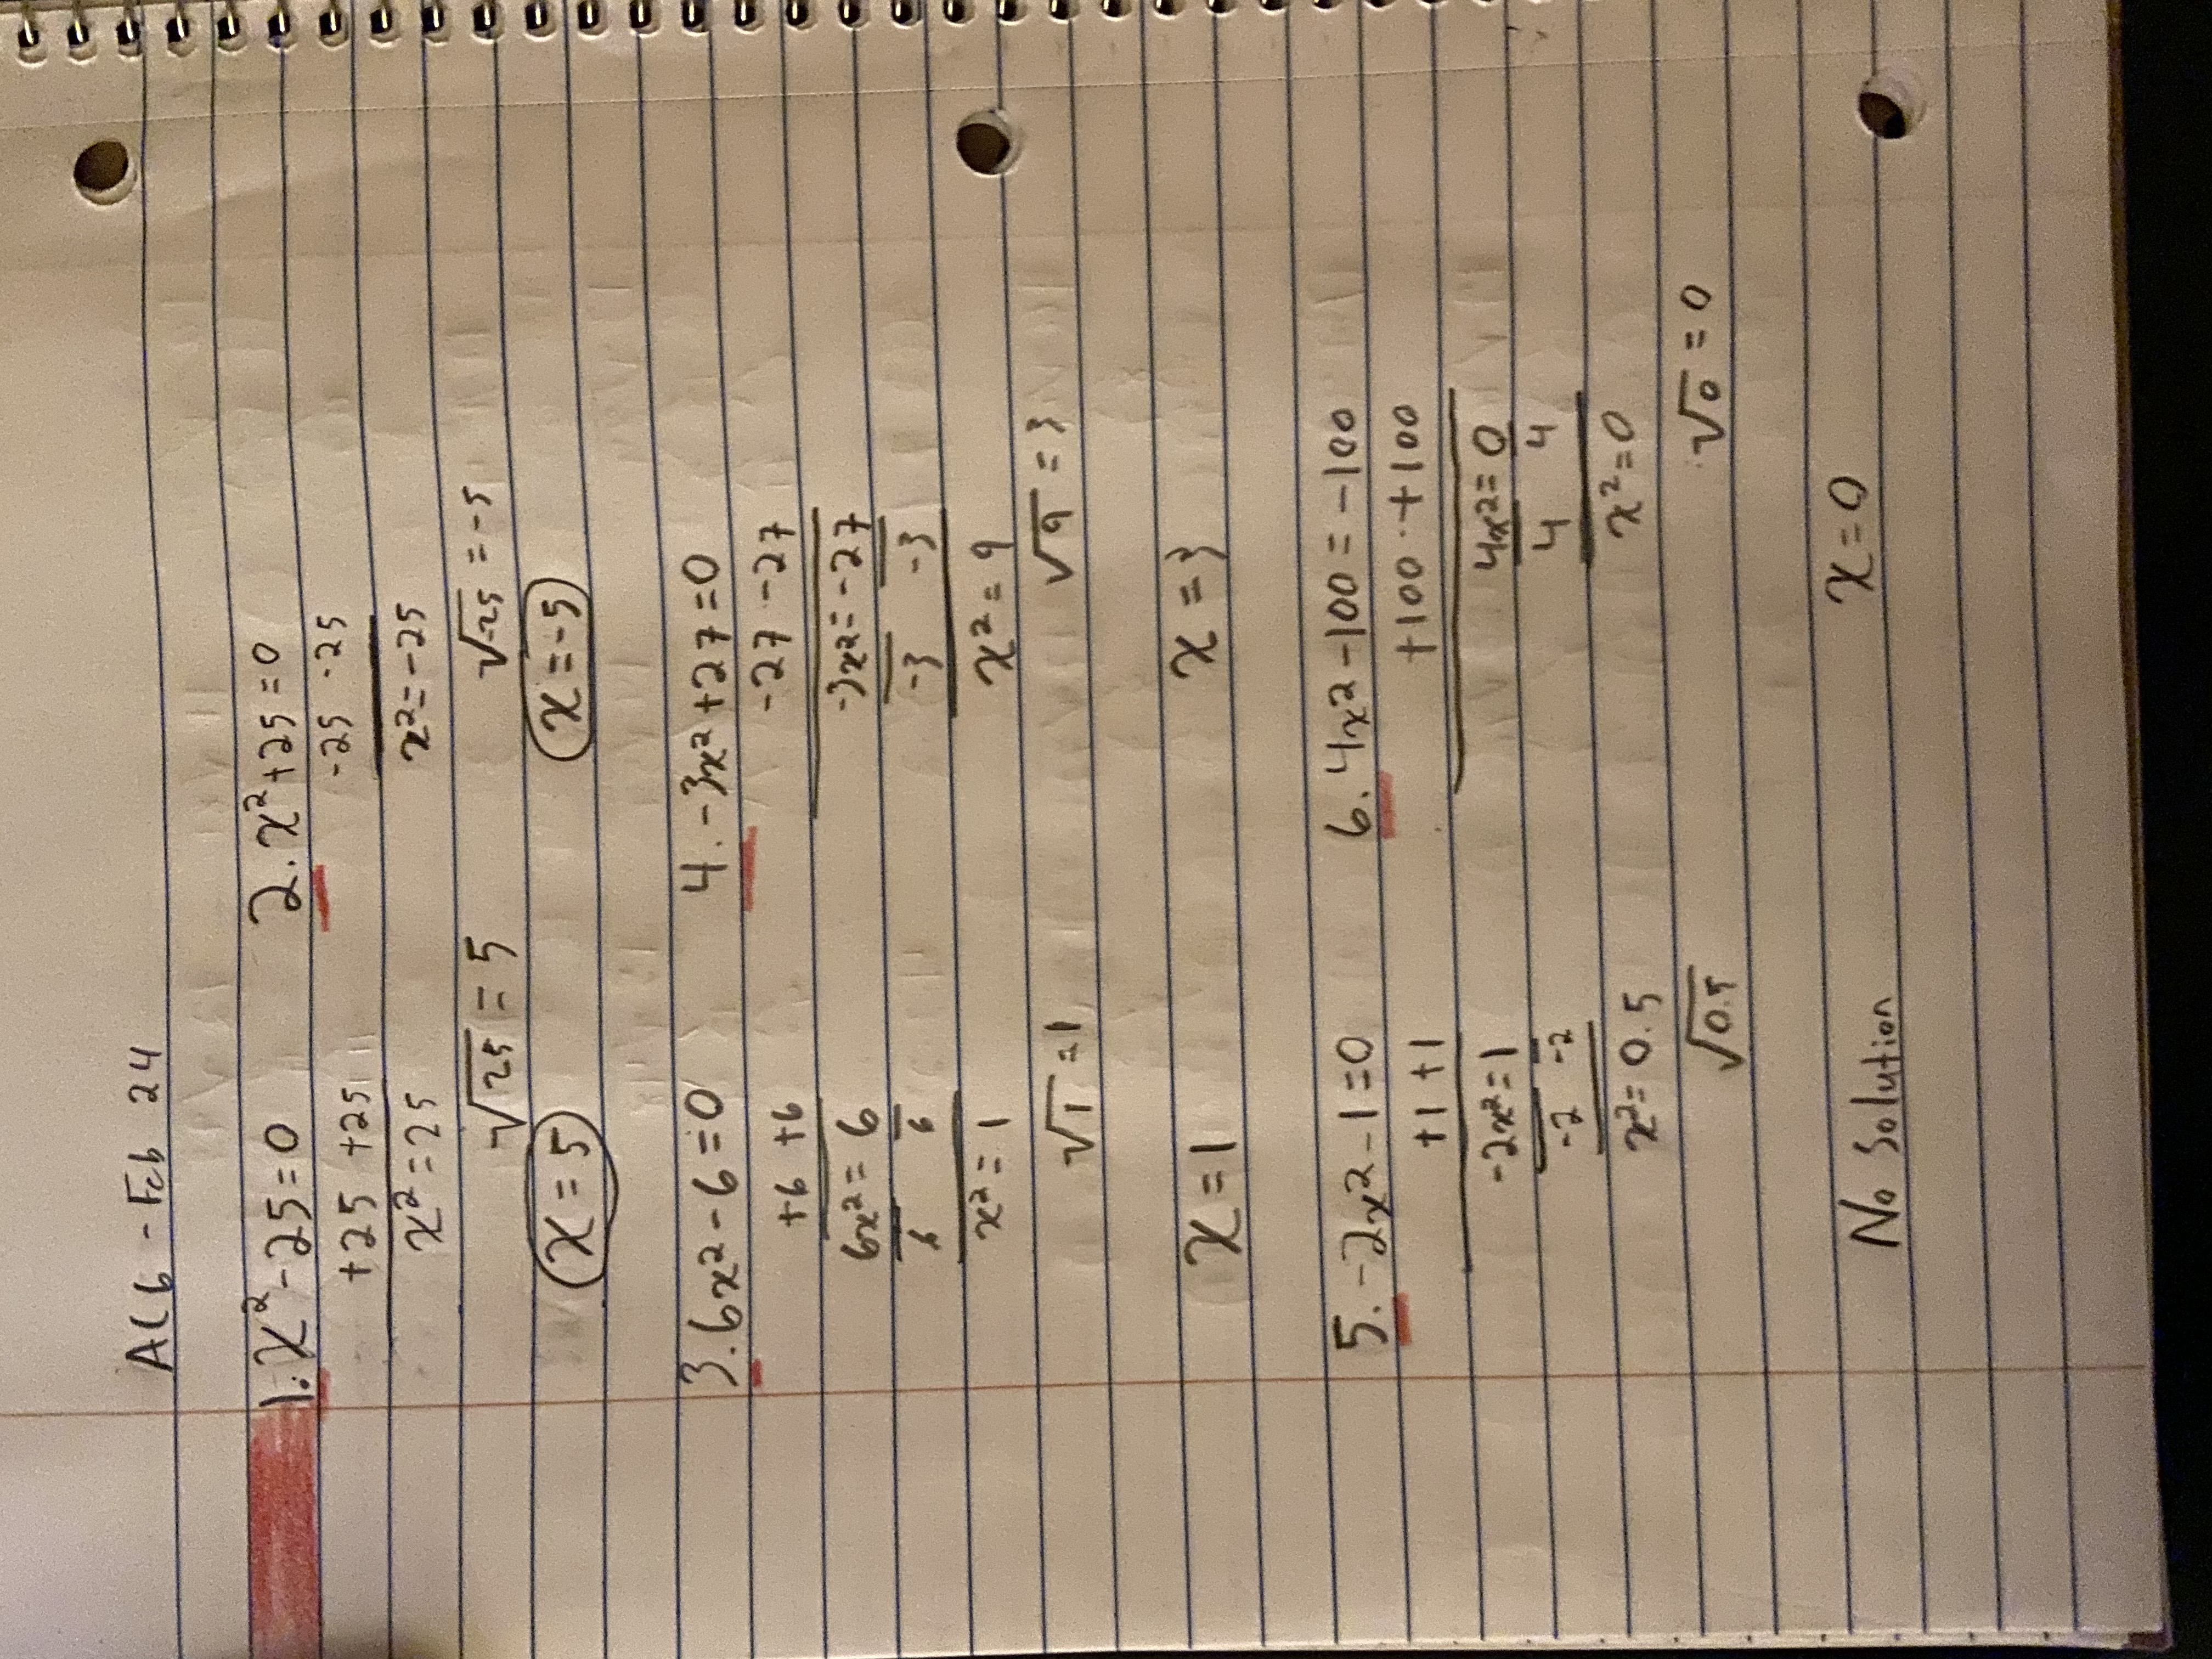 AC6 - Feb 24
1. x² - 25 = 0
+25 +25
x² = 25
√25 = 5
x = 5
2. x² + 25 = 0
-25 -25
x² = -25
√-25 = -5
x = -5
3. 6x² - 6 = 0
+6 +6
6x² = 6
6 6
x² = 1
√1 = 1
x = 1
4. -3x² + 27 = 0
-27 -27
-3x² = -27
-3 -3
x² = 9
√9 = 3
x = 3
5. -2x² - 1 = 0
+1 +1
-2x² = 1
-2 -2
x² = 0.5
√0.5
No Solution
6. 4x² - 100 = -100
+100 +100
4x² = 0
4 4
x² = 0
√0 = 0
x = 0